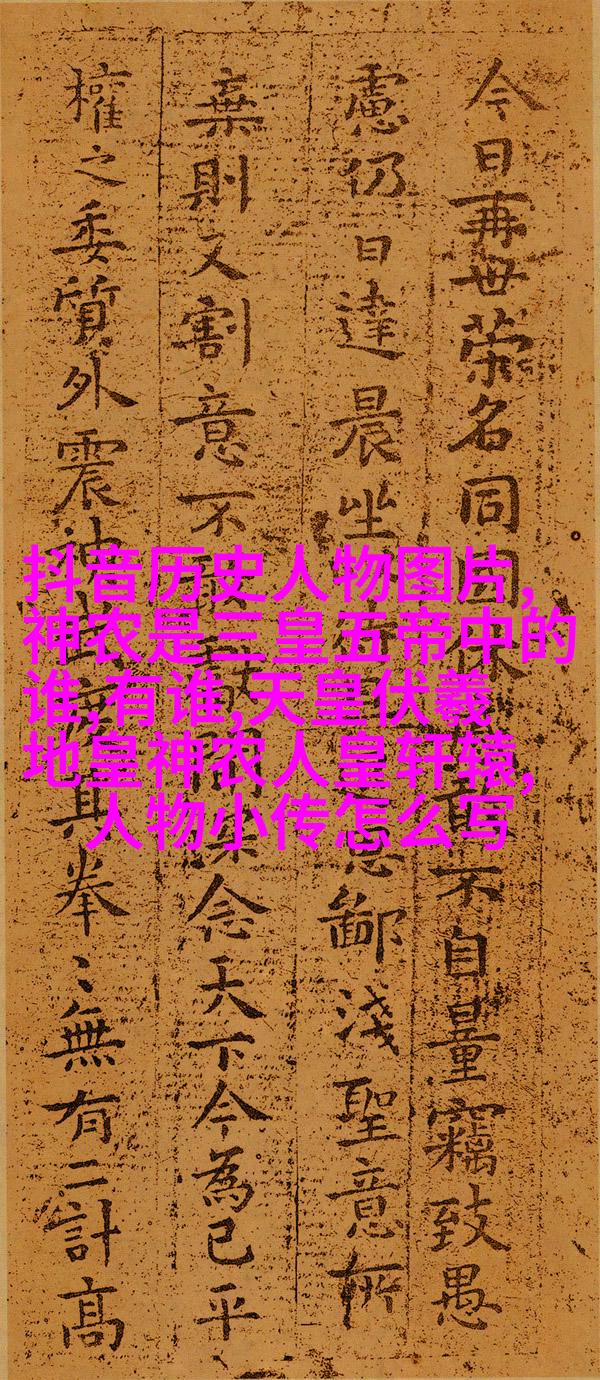 今日再世荣名同国休不自量竊致愚
慮仍日達晨坐待思鄙淺聖意所
棄則又割意不敢聞深念天下今為已平
權之委質外震神武度其拳〻無有二計高
抖音历史人物图片,
神农是三皇五帝中的
谁,有谁,天皇伏羲
地皇神农人皇轩辕,
人物小传怎么写